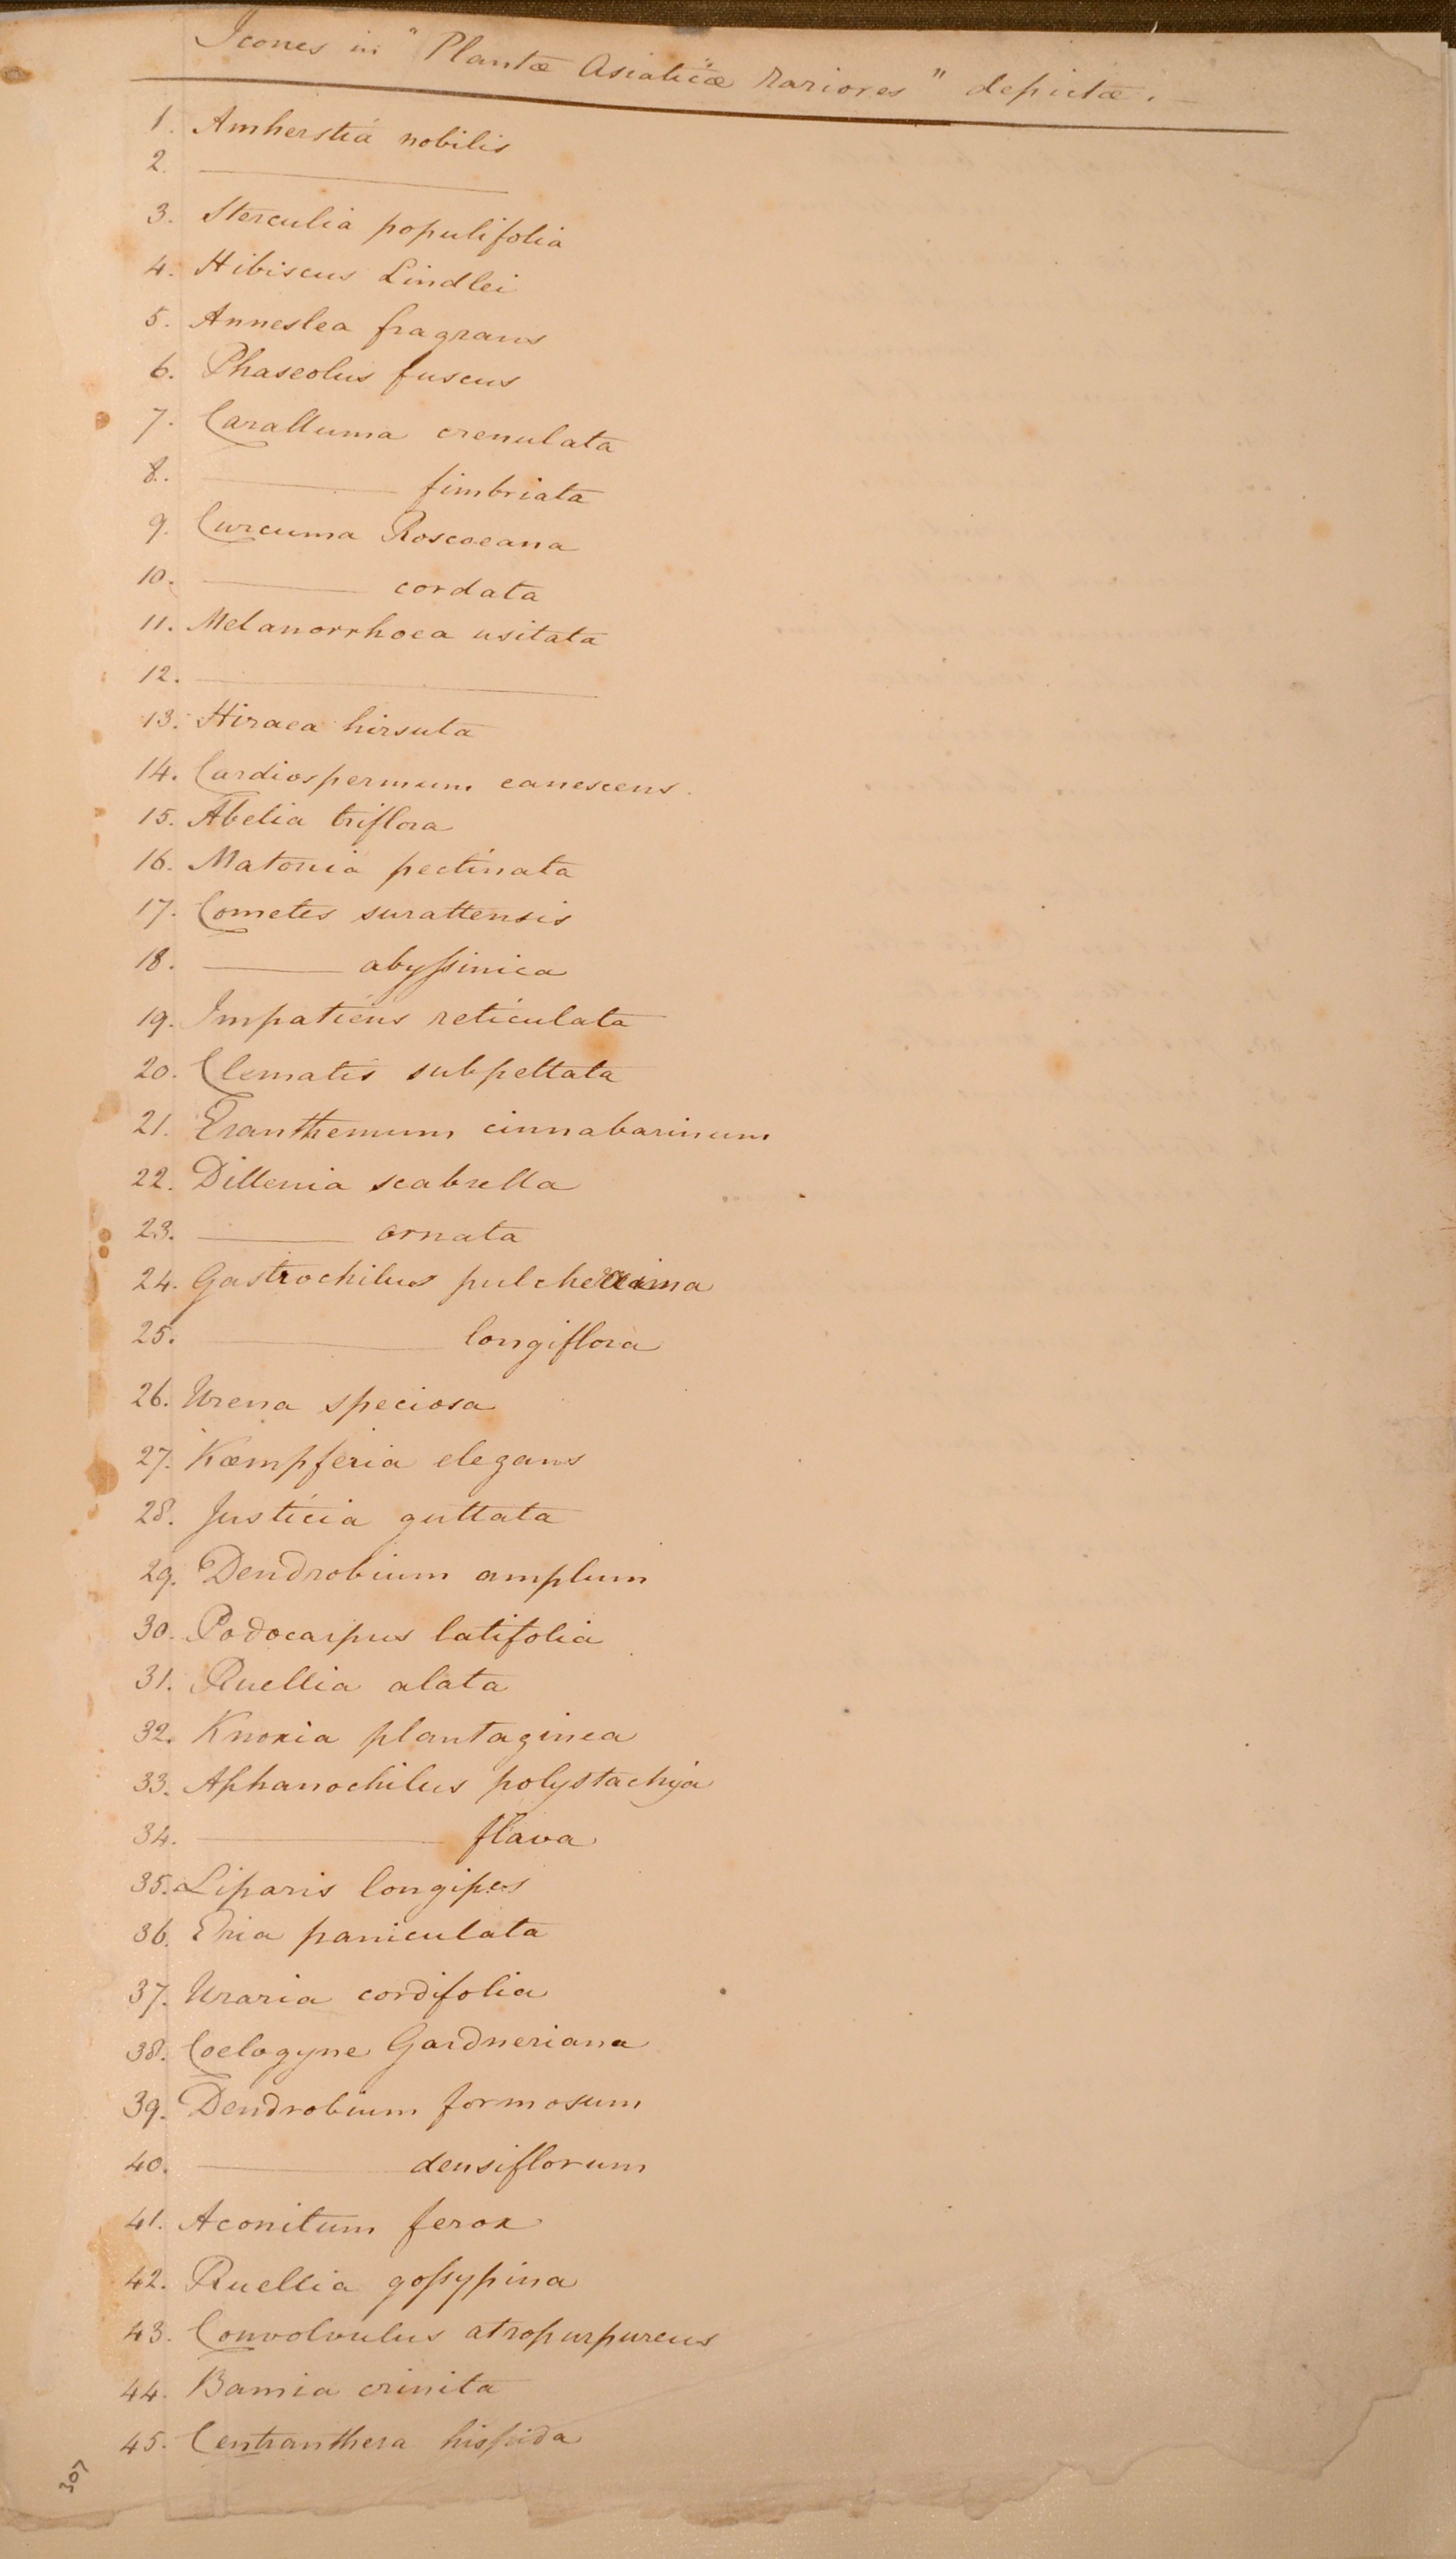 Icones in "Plantæ Asiaticæ rariores" depictæ.
1. Amherstia nobilis
2. ———
3. Sterculia populifolia
4. Hibiscus Lindlei
5. Anneslea fragrans
6. Phaseolus fuscus
7. Caralluma crenulata
8. ——— fimbriata
9. Curcuma Roscoeana
10. ——— cordata
11. Melanorrhoea usitata
12. ———
13. Hiraea hirsuta
14. Cardiospermum canescens.
15. Abelia triflora
16. Matonia pectinata
17. Cometes surattensis
18. ——— abyſsinica
19. Impatiens reticulata
20. Clematis subpeltata
21. Eranthemum cinnabarinum
22. Dillenia scabrella
23. ——— ornata
24. Gastrochilus pulcherrima
25. ——— longiflora
26. Urena speciosa
27. Kæmpferia elegans
28. Justicia guttata
29. Dendrobium amplum
30. Podocarpus latifolia
31. Ruellia alata
32. Knoxia plantaginea
33. Aphanochilus polystachya
34. ——— flava
35. Liparis longipes
36. Eria paniculata
37. Uraria cordifolia
38. Coelogyne Gardneriana
39. Dendrobium formosum
40. ——— densiflorum
41. Aconitum ferox
42. Ruellia goſsypina
43. Convolvulus atropurpureus
44. Bamia crinita
45. Centranthera hispida
307